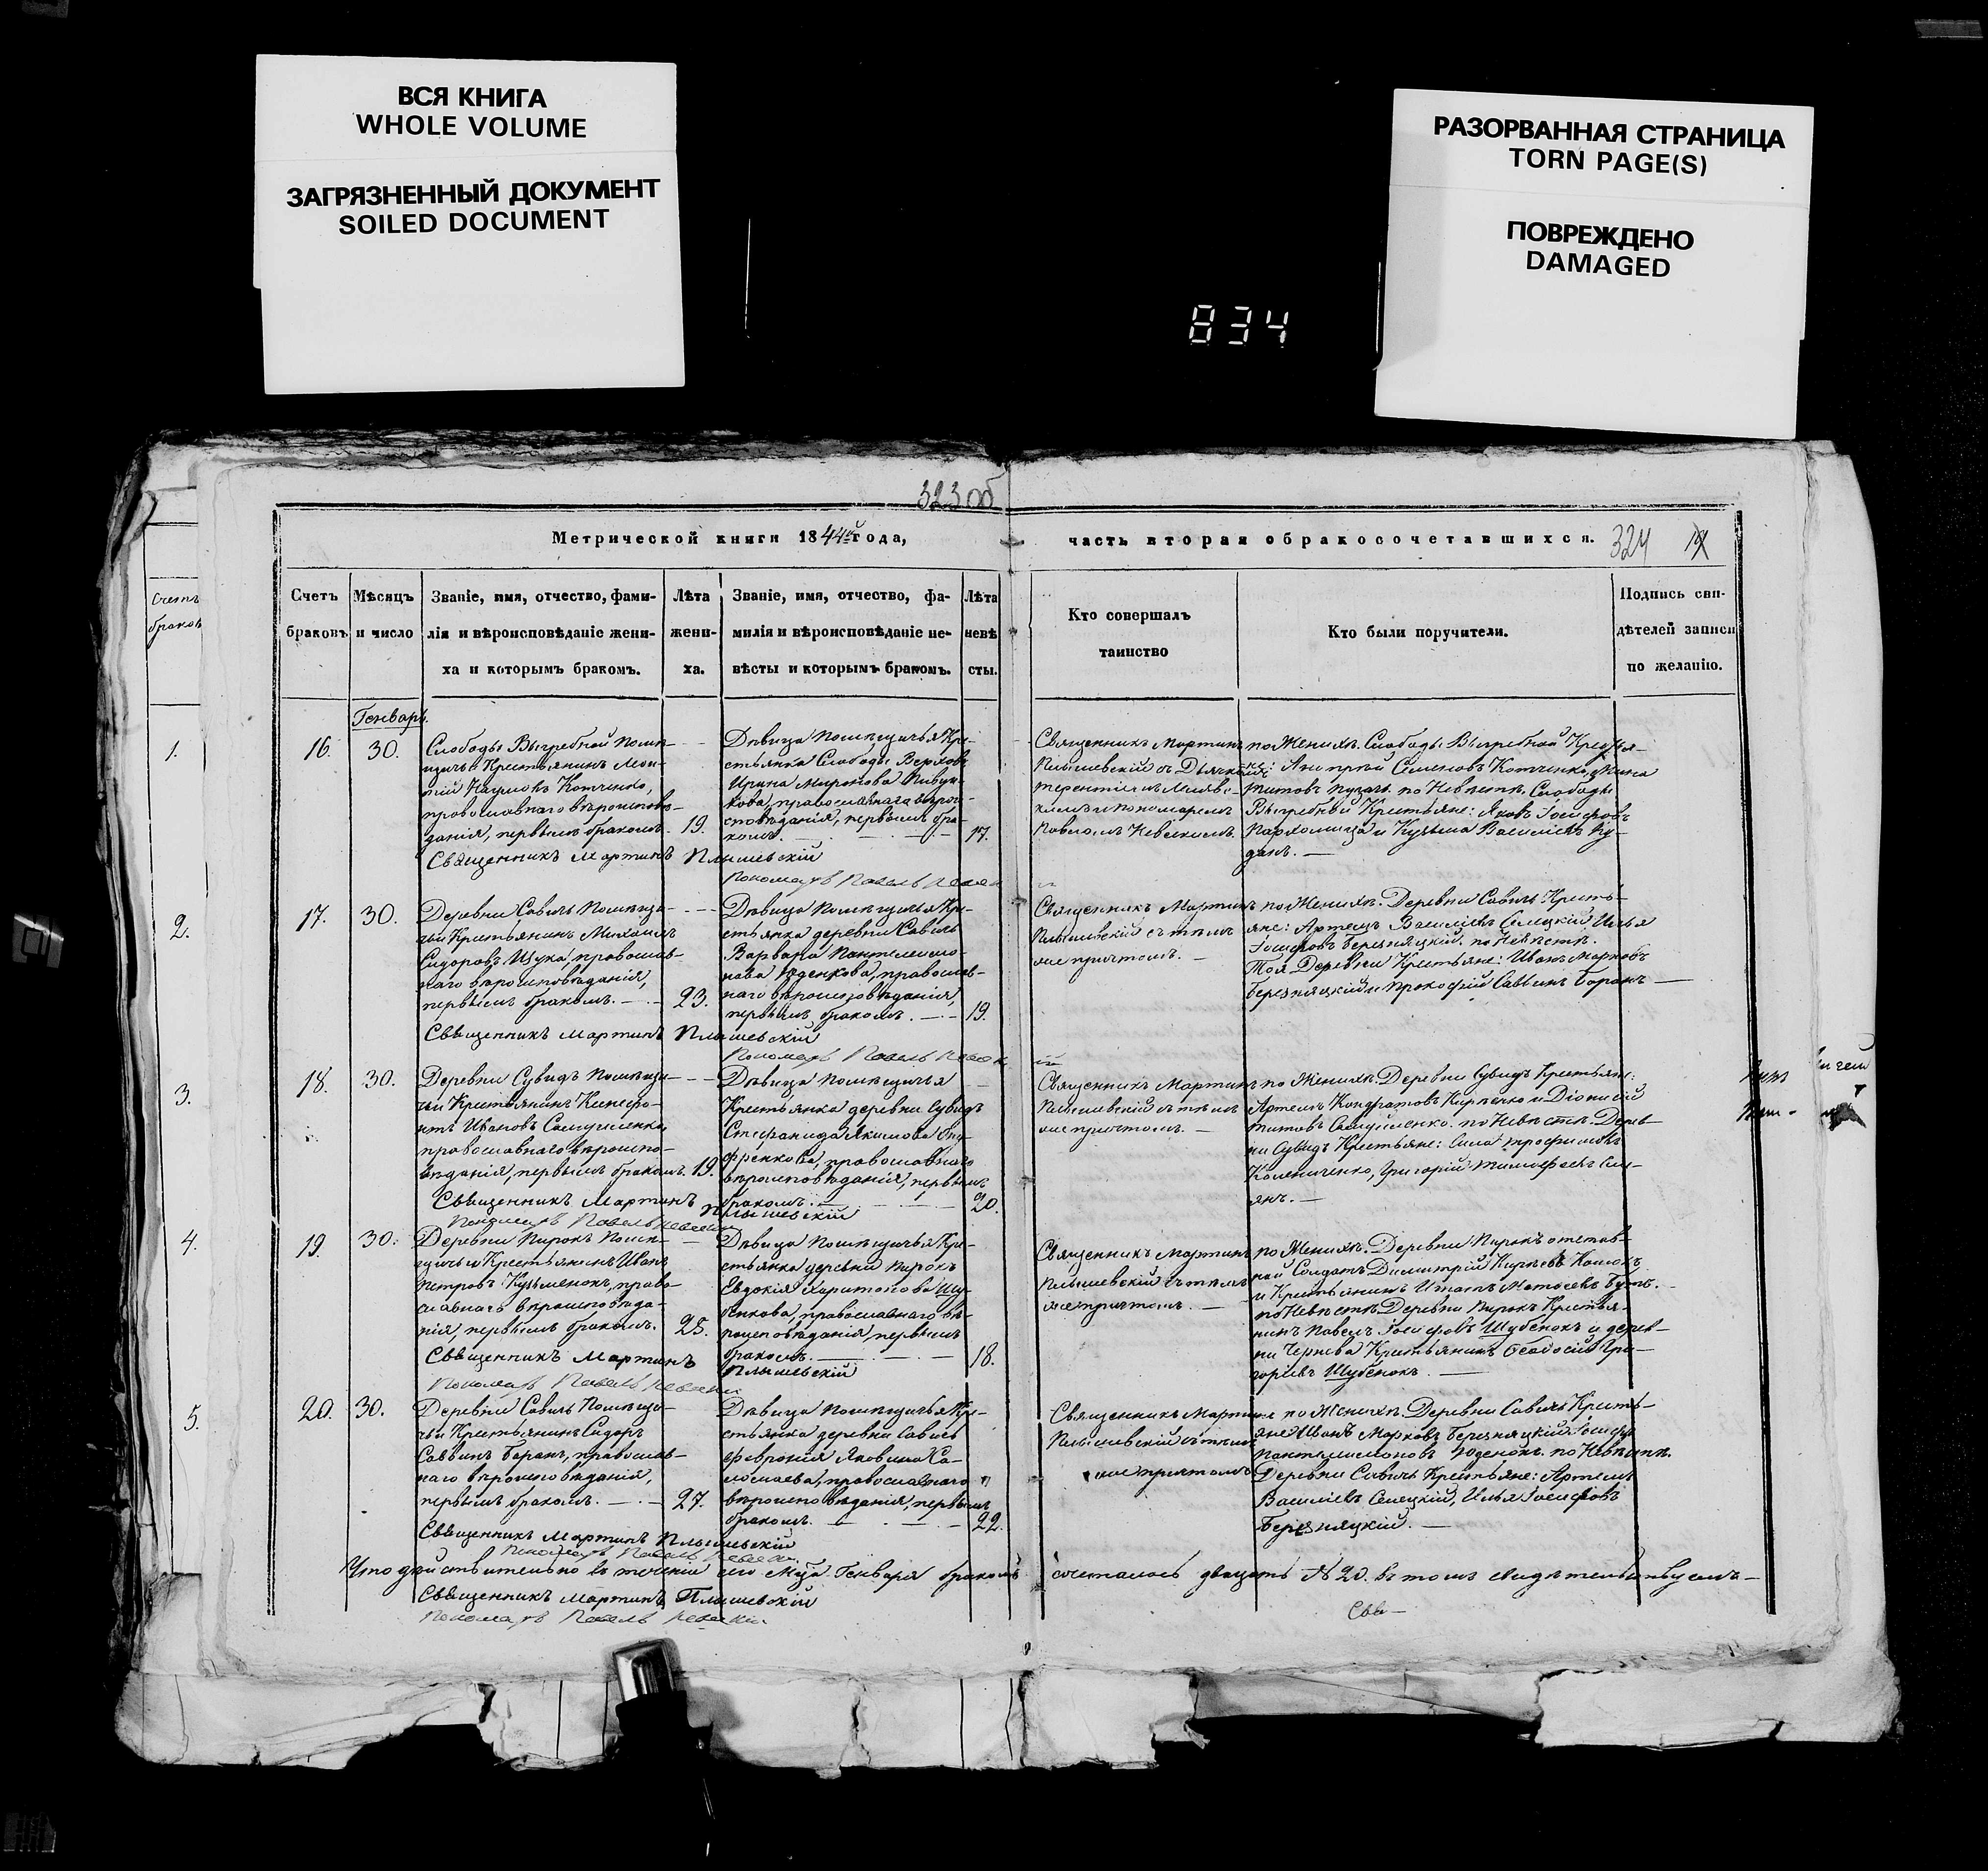 ВСЯ КНИГА
WHOLE VOLUME
ЗАГРЯЗНЕННЫЙ ДОКУМЕНТ
SOILED DOCUMENT
РАЗОРВАННАЯ СТРАНИЦА
TORN PAGE(S)
ПОВРЕЖДЕНО
DAMAGED
834
323 об
Метрической книги 1844й года,
часть вторая о бракосочетавшихся.
324
Счетъ
браковъ
Мѣсяцъ
и число
Званіе, имя, отчество, фами-
лія и вѣроисповѣданіе жени-
ха и которымъ бракомъ.
Лѣта
жени-
ха.
Званіе, имя, отчество, фа-
милія и вѣроисповѣданіе не-
вѣсты и которымъ бракомъ.
Лѣта
невѣ
сты.
Кто совершалъ
таинство
Кто были поручители.
Подпись сви-
дѣтелей записи
по желанію.
Счетъ
браковъ
1.
2.
3.
4.
5.
Генварь.
16.
30.
Слободы Выгребной Помѣ-
щичьй Крестьянинъ Леон-
тій Наумовъ Котченко,
православнаго вѣроисповѣ-
данія, первымъ бракомъ.
19.
Дѣвица Помѣщичья Кре-
стьянка Слободы Верхов
Ирина Миронова Пивун-
кова, православнаго вѣрои-
сповѣданія, первымъ бра-
комъ.
17.
Священникъ Мартинъ Плышевскій
Пономарь Павелъ
Священникъ Мартинъ
Плышевскій съ Дьячкомъ
Терентіемъ
и пономаремъ
Павломъ Невскимъ.
по Женихѣ. Слободы Выгребной Крестья-
не: Семеновъ Котченко,
Титовъ по Невѣстѣ. Слободы
Выгребной Крестьяне: Яковъ Іосифовъ
Пархомица и Кузьма Василіевъ Ку-
данъ.
17.
30.
Деревни Савичъ Помѣщи-
чьй Крестьянинъ Михаилъ
Сидоровъ Щука, православ-
наго вѣроисповѣданія,
первымъ бракомъ.
23.
Дѣвица Помѣщичья Кре-
стьянка деревни Савичъ
Варвара Пантелеимо-
нова Юденкова, православ-
наго вѣроисповѣданія,
первымъ бракомъ.
19.
Священникъ Мартинъ Плышевскій
Пономарь Павелъ
Священникъ Мартинъ
Плышевскій съ тѣмъ
же причтомъ.
по Женихѣ. Деревни Савичъ Кресть-
яне: Артемъ Василіевъ Селецкій Илья
Іосифовъ Березняцкій. по Невѣстѣ.
Тоя Деревни Крестьяне: Иванъ Марковъ
Березняцкій и Прокофій Саввинъ Баранъ
18.
30.
Деревни Сувидъ Помѣщи-
чьй Крестьянинъ Ксенофо-
нтъ Ивановъ Самуиленко,
православнаго вѣроиспо-
вѣданія, первымъ бракомъ.
19.
Дѣвица Помѣщичья
Крестьянка деревни Сувидъ
Стефанида Якимова
православнаго
вѣроисповѣданія, первымъ
бракомъ.
20.
Священникъ Мартинъ
Плышевскій
Пономарь Павелъ
Священникъ Мартинъ
Плышевскій съ тѣмъ
же причтомъ.
по Женихѣ. Деревни Сувидъ Крестьяне:
Артемъ Кондратовъ Кириенко и Діонисій
Титовъ Самуиленко. по Невѣстѣ. Дерев-
ни Сувидъ Крестьяне: Сила Трофимовъ
Коленченко, Григорій Тимофѣевъ Сем-
янъ.
19.
30.
Деревни Пирокъ Помѣ-
щичьй Крестьянинъ Иванъ
Петровъ Кузьменокъ, право-
славнаго вѣроисповѣда-
нія, первымъ бракомъ.
25.
Дѣвица Помѣщичья Кре-
стьянка деревни Пирокъ
Евдокія Харитонова Шу-
бенкова, православнаго вѣ-
роисповѣданія, первымъ
бракомъ.
18.
Священникъ Мартинъ
Плышевскій
Пономарь Павелъ
Священникъ Мартинъ
Плышевскій съ тѣмъ
же причтомъ.
по Женихѣ. Деревни Пирокъ отстав-
ной Солдатъ Димитрій Кирѣевъ
и Крестьянинъ Игнатъ Матѳеевъ
по Невѣстѣ. Деревни Пирокъ Крестья-
нинъ Павелъ Іосифовъ Шубенокъ и дерев-
ни Чернева Крестьянинъ Ѳеодосій Гри-
горіевъ Шубенокъ.
20.
30.
Деревни Савичъ Помѣщи-
чьй Крестьянинъ Сидоръ
Саввинъ Баранъ, православ-
наго вѣроисповѣданія,
первымъ бракомъ.
27.
Дѣвица Помѣщичья Кре-
стьянка деревни Савичъ
Февронія Яковлева Са-
ломаева, православнаго
вѣроисповѣданія, первымъ
бракомъ.
22.
Священникъ Мартинъ Плышевскій
Пономарь Павелъ
Священникъ Мартинъ
Плышевскій съ тѣмъ
же причтомъ
по Женихѣ. Деревни Савичъ Кресть-
яне Иванъ Марковъ Березняцкій Іосифъ
Пантелеимоновъ Юденокъ. по Невѣстѣ.
Деревни Савичъ Крестьяне: Артемъ
Василіевъ Селецкій, Илья Іосифовъ
Березняцкій.
Что дѣйствительно въ теченіи сего Мца Генваря бракомъ сочеталось двадцать № 20. въ томъ свидѣтельствуемъ
Священникъ Мартинъ Плышевскій
Пономарь Павелъ Невскій
Свя-